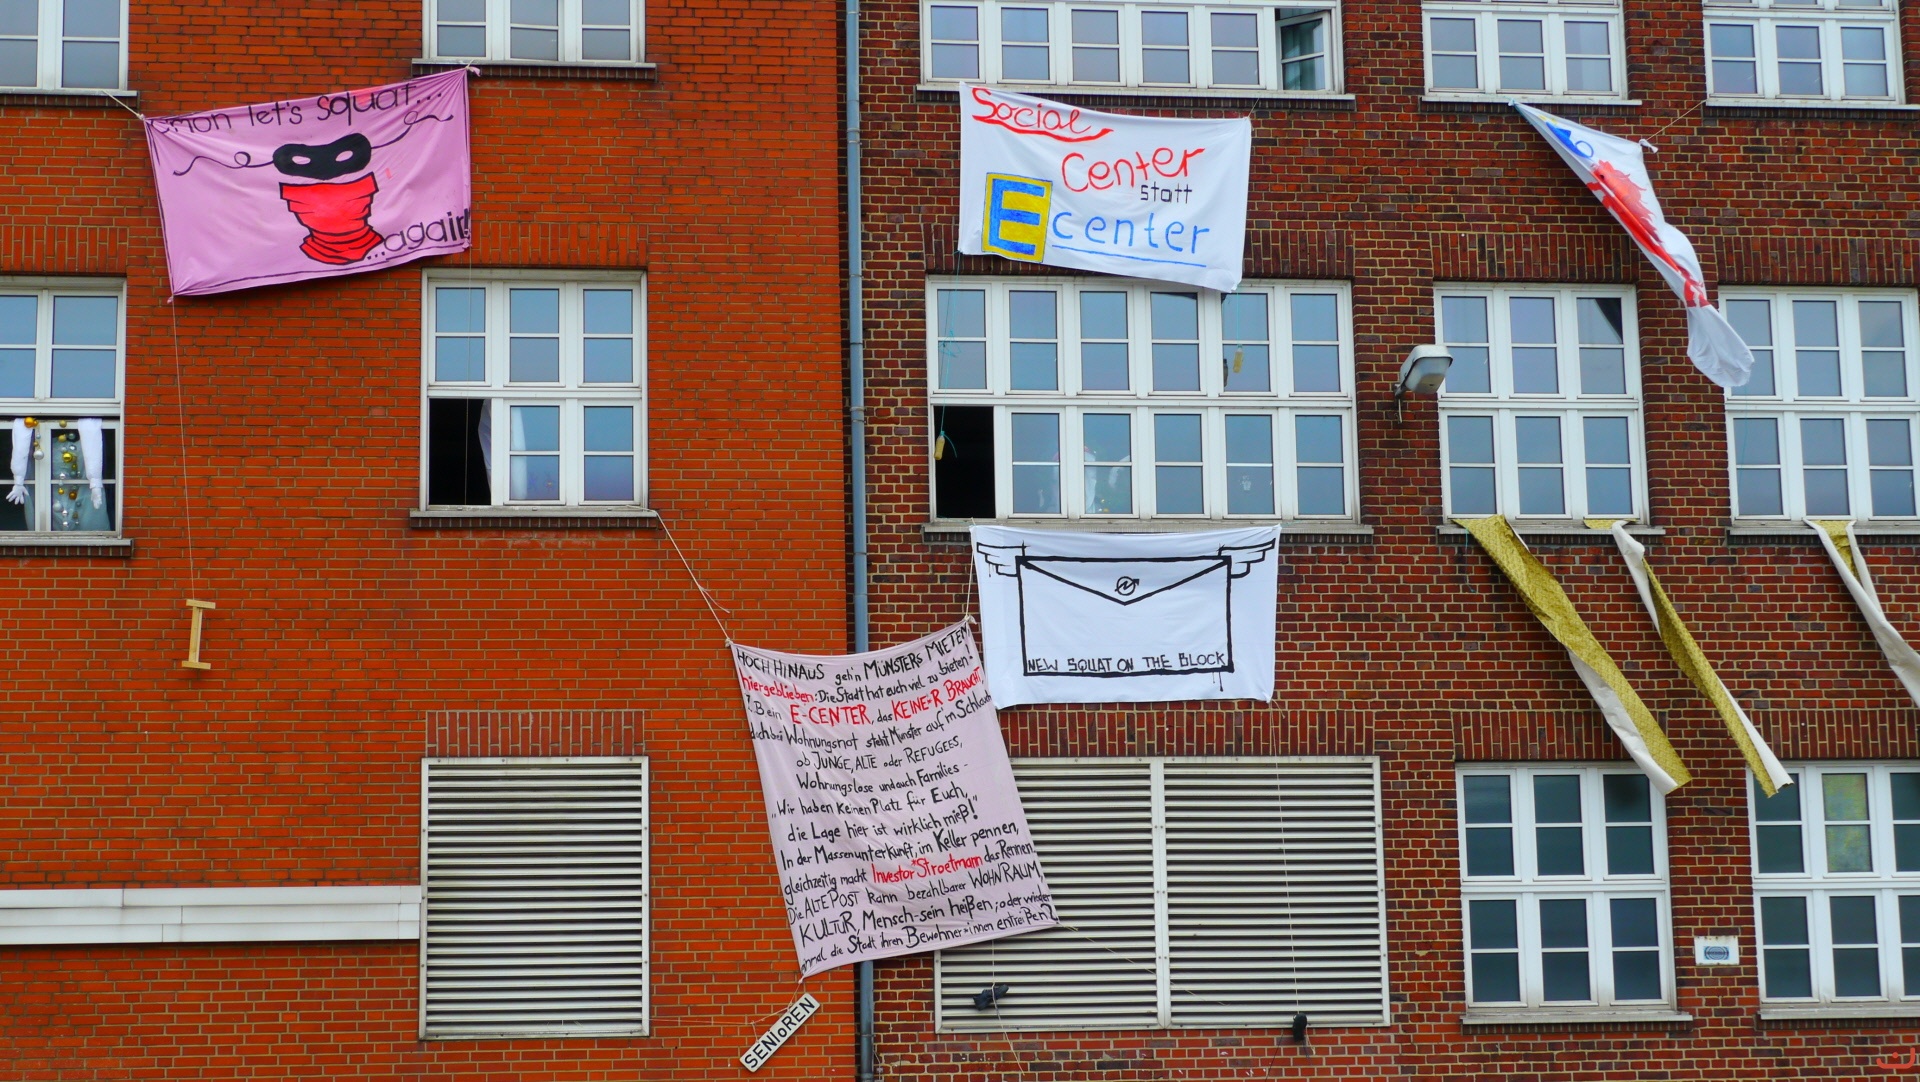 c'mon let's squat...
...again!
Social
Center
statt
E center
NEW SQUAT ON THE BLOCK
HOCH HINAUS geh'n MÜNSTERS MIETEN,
hiergeblieben: Die Stadt hat euch viel zu bieten!
Z.B ein E-CENTER, das KEINE*R BRAUCHT,
doch bei Wohnungsnot steht Münster auf'm Schlauch
ob JUNGE, ALTE oder REFUGEES,
Wohnungslose und auch Families -
"Wir haben keinen Platz für Euch,
die Lage hier ist wirklich mieß!"
In der Massenunterkunft, im Keller pennen,
gleichzeitig macht Investor*Stroetmann das Rennen
Die ALTE POST kann bezahlbarer WOHNRAUM,
KULTUR, Mensch-sein heißen; oder wieder
einmal die Stadt ihren Bewohner*innen entreißen?
SENiOREN